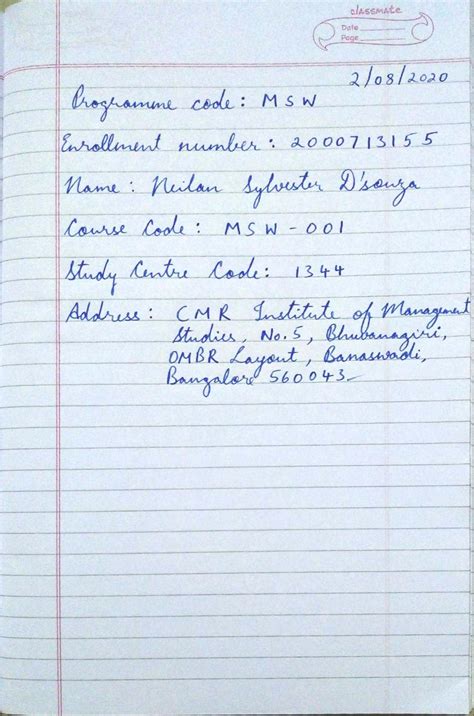 classmate
Date
Page
2/08/2020
Programme code: MSW
Enrollment number: 2000713155
Name: Neilan Sylvester D'souza
Course Code: MSW-001
Study Centre Code: 1344
Address: CMR Institute of Management
Studies, No.5, Bhuvanagiri,
OMBR Layout, Banaswadi,
Bangalore 560043-